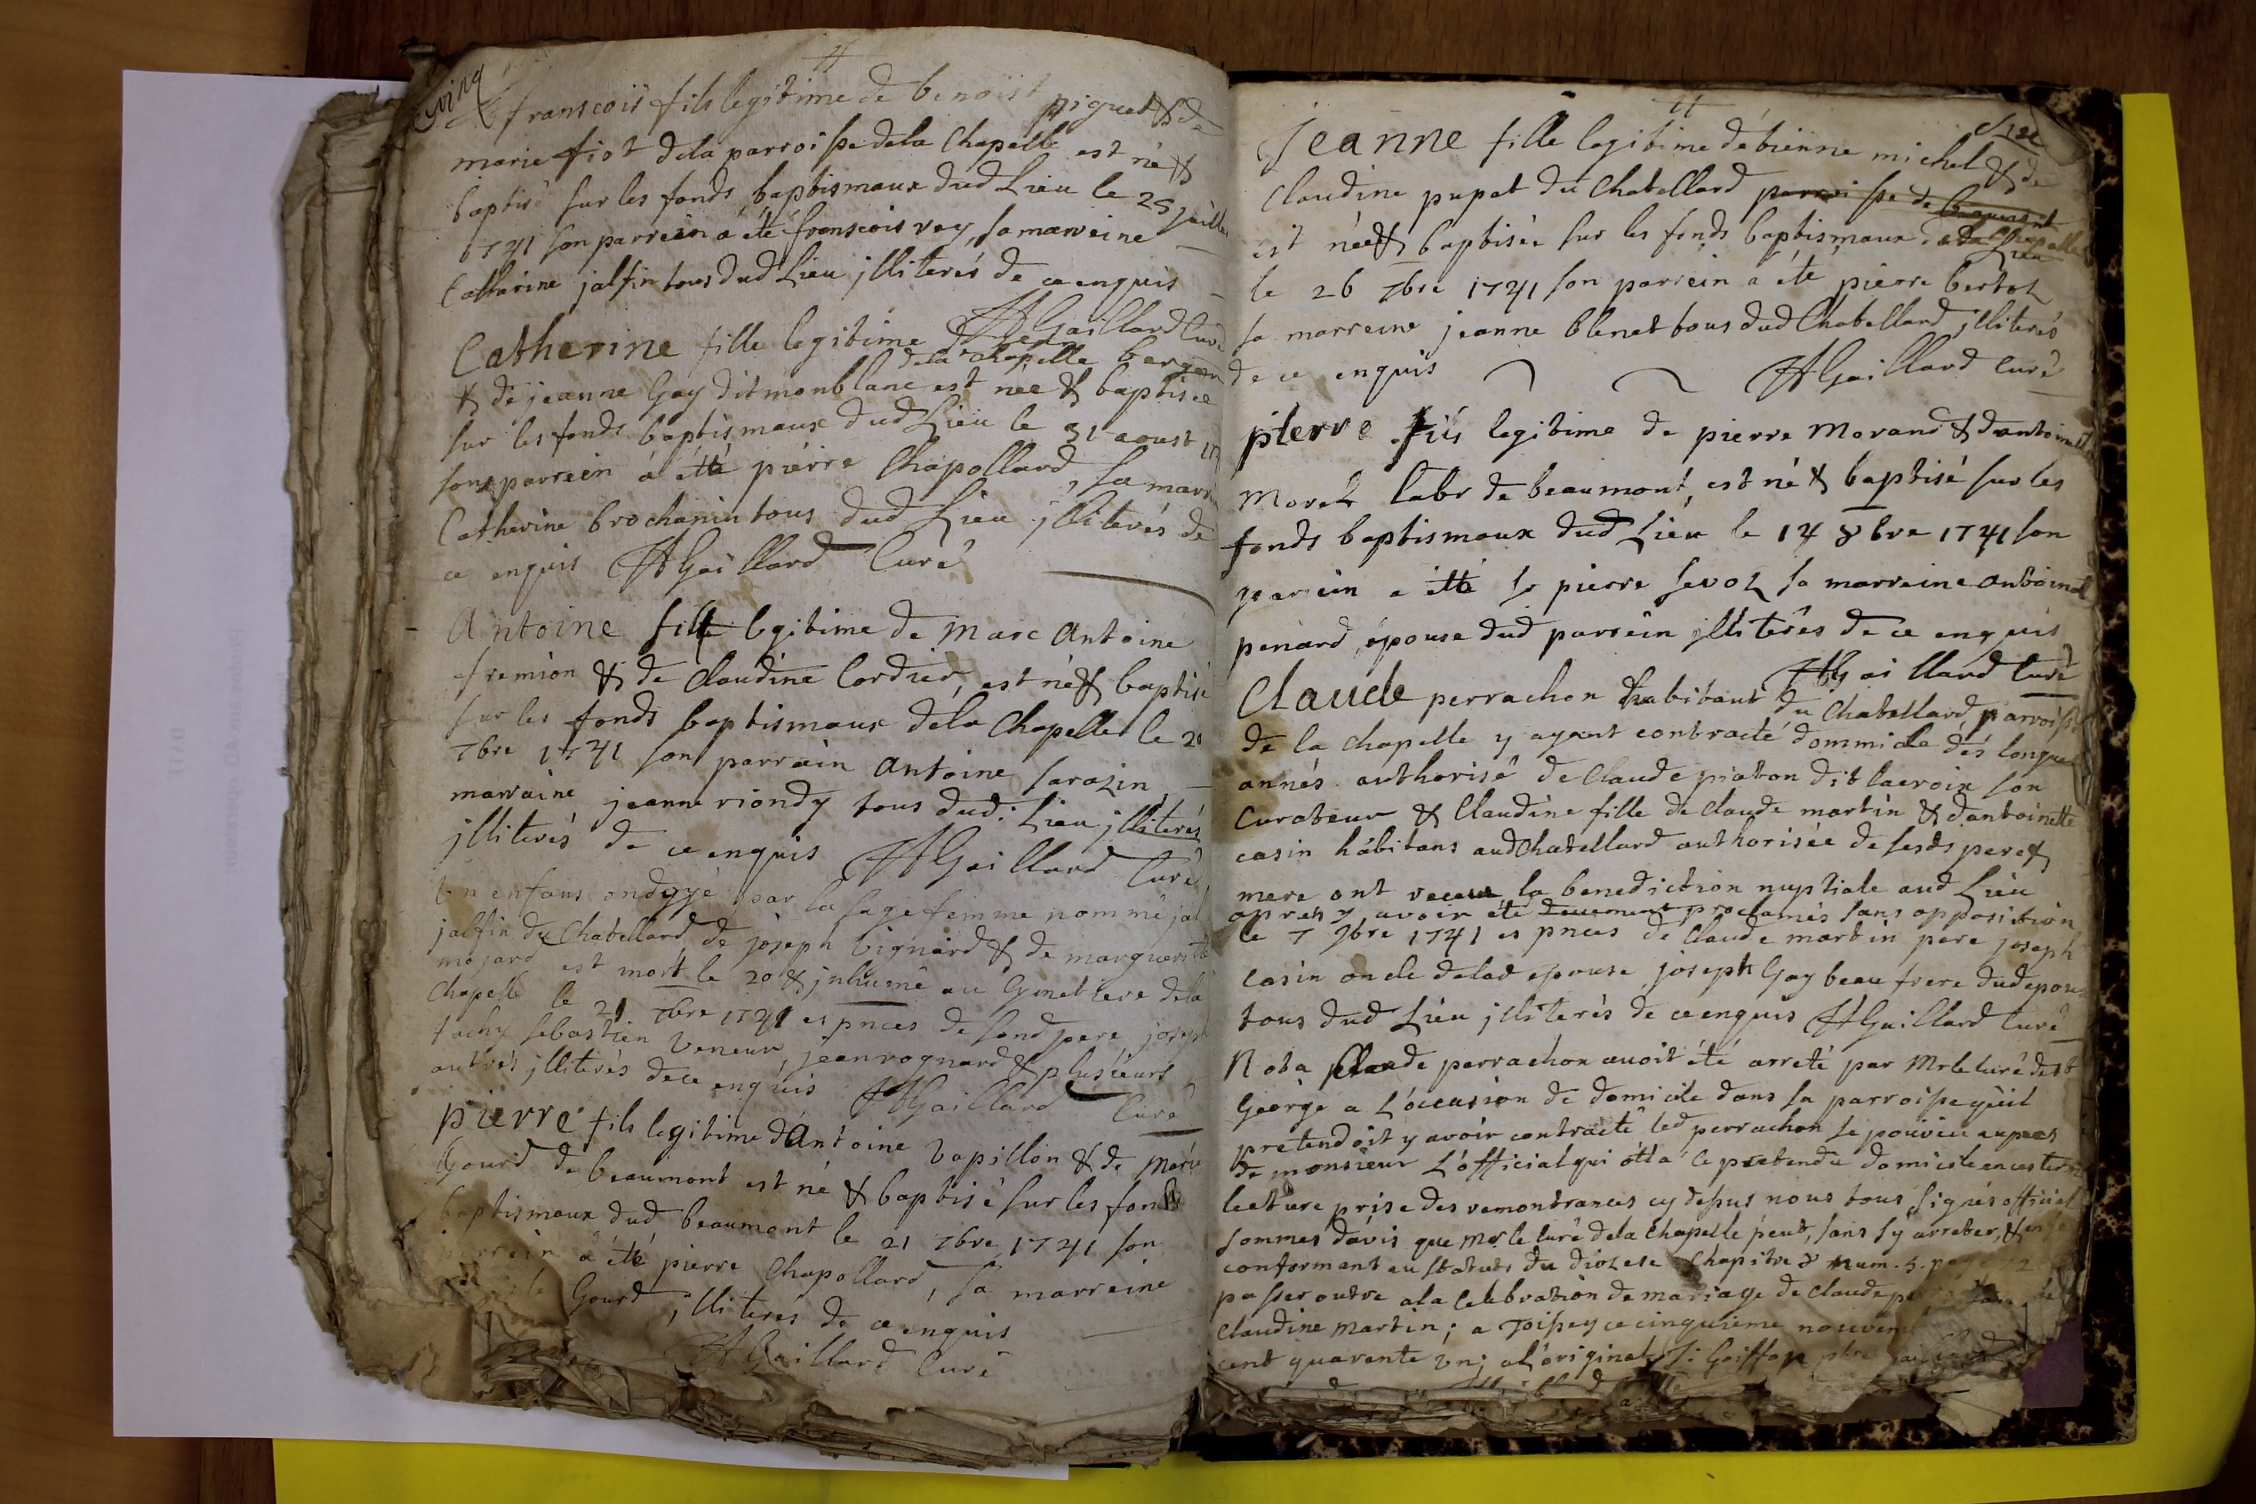 fransçoiï fils legitime de benoist piguet & de
marie fiot dela parroisse dela Chapelle est né &
baptisé sur les fonds baptismaux dud Lieu le 25 juillet
1741 son parrein à été fronscois rey, sa marreine
Catharine jalfin tous dud Lieu jlliterés de ce enquis
HGaillard Curé
Catherine fille legitime
dela chapelle
& de jeanne Gay dit monblanc est née & baptisée
sur les fonds baptismaux dud Lieu le 31 aoust
son parrein à été pierre Chapollard, sa marr
Catherine brochanin tous dud Lieu jlliterés de
ce enquis HGaillard Curé
Antoine fils legitime de Marc Antoine
fremion & de Claudine Cordier, est né & baptisé
sur les fonds baptismaux dela Chapelle le 20
7bre 1741 son parrain Antoine sarazin
marraine jeanne riondy tous dud: Lieu jlliterés
jlliterés de ce enquis HGaillard Curé
Un enfans ondoyé par la sagefemme nommé
jalfin du Chatellard de joseph vignard & de marguerite
mojard est mort le 20 & jnhumé au Cymetiere dela
Chapelle le 21 7bre 1741 es pnces de sond pere, joseph
tachy sebastien Veneur, jean rognard & plusieurs
autres jlliterés de ce enquis HGaillard Curé
pierre fils legitime d'Antoine Vapillon & de Marie
Gourd de beaumont est né & baptisé sur les fonds
baptismaux dud beaumont le 21 7bre 1741 son
parrein à été pierre Chapollard, sa marreine
Gourd, jlliterés de ce enquis
HGaillard Curé
Jeanne fille legitime détienne michel & de
Claudine pupat du Chatellard parroisse de beaumont
est née & baptisée sur les fonds baptismaux dela Chapelle
le 26 7bre 1741 son parrein a été pierre bertol
sa marreine jeanne blenet tous dud Chatellard, jlliterés
de ce enquis HGaillard Curé
pierre fils legitime de pierre Morand & dantoinette
Morel labr de beaumont, est né & baptisé sur les
fonds baptismaux dud Lieu le 14 8bre 1741 son
parrein a été sr pierre sevoz sa marreine antoinette
penard, épouse dud parrein jlliterés de ce enquis
HGaillard Curé
Claude perrachon habitant du Chatellard, parroisse
de la chapelle y ayant contracté dommicile dés longues
annés authorisé de Claude piaton dit lacroix son
Curateur & Claudine fille de Claude martin & dantoinette
casin hâbitans aud Chatellard authorisée de sesds pere &
mere ont receu la benediction nuptiale aud Lieu
apres y avoir été deuement proclamés sans opposition
le 7 9bre 1741 es pnces de Claude martin pere joseph
casin oncle delad epouse, joseph Gay beau frere dud epoux
tous dud Lieu jlliterés de ce enquis HGaillard Curé
Nota Claude perrachon auoit été arreté par Mr le Curé de st
George a L'occasion de domicile dans sa parroisse qu'il
pretendoit y avoir contracté led perrachon se pouruu aupres
de monsieur L'official qui otta ce pretendu domicile en ces termes
lecture prise des remontrances cy dessus nous sous signés official
sommes d'avis que Mr le Curé dela Chapelle peut, sans s'y arreter, & en se
conformant au statuts du diozese Chapitre 8 num. 5. page
passer outre a la Celebration de mariage de Claude
Claudine Martin; a Toissey ce cinquieme nouvem
cent quarante vn; a L'original